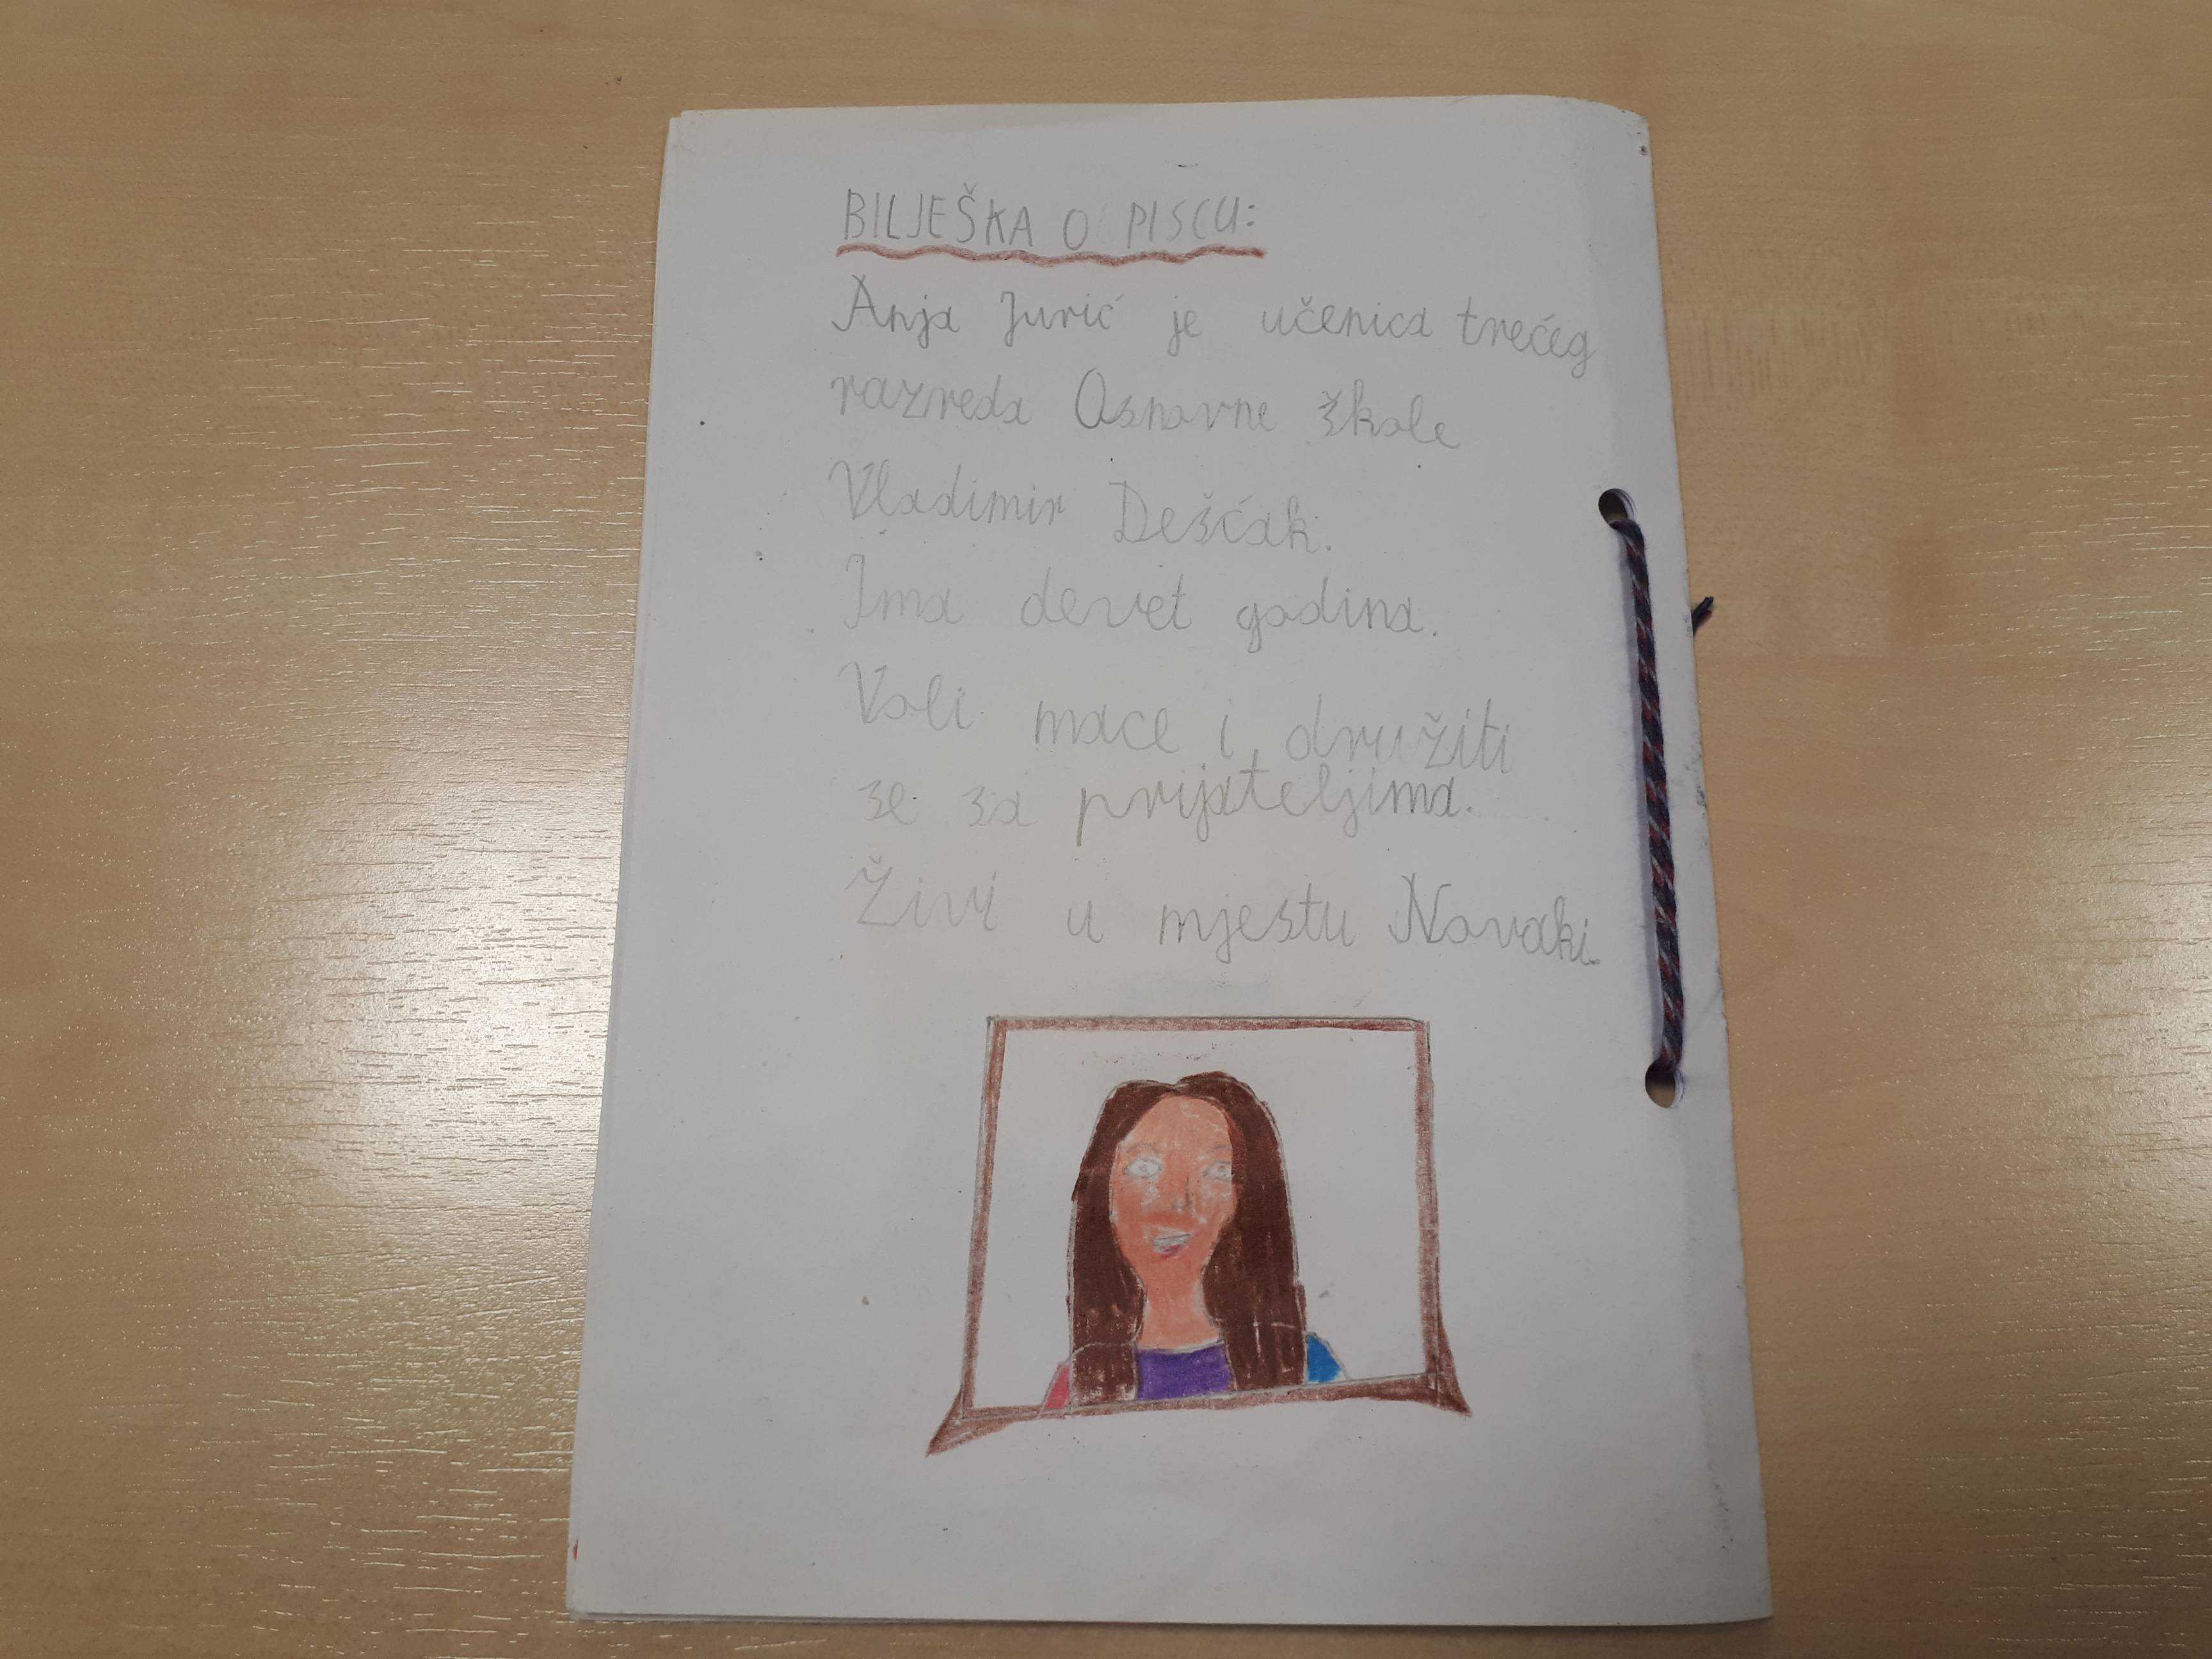 BILJEŠKA O PISCU:
Anja Jurić je učenica trećeg
razreda Osnovne škole
Vladimir Dešćak.
Ima devet godina.
Voli mace i družiti
se sa prijateljima.
Živi u mjestu Novaki.